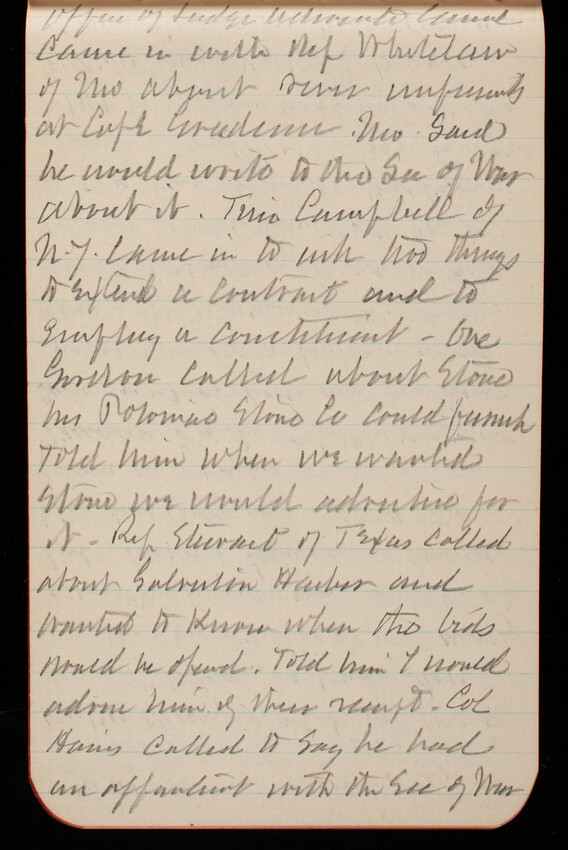 office of Judge Advocate Genl
Came in with Rep Whitelaw
of Mo about river improvmts
at Cape Girardeau Mo. Said
he would write to the Sec of War
about it. Tim Campbell of
N.Y. came in to ask two things
to extend a contract and to
Employ a constituent - One
Gordon called about Stone
his Potomac Stone Co could furnish
Told him when we wanted
Stone we would advertise for
it - Rep Stewart of Texas called
about Galveston Harbor and
wanted to Know when the bids
would be opend. Told him I would
advise him of their receipt - Col
Hains called to say he had
an appointmt with the Sec of War